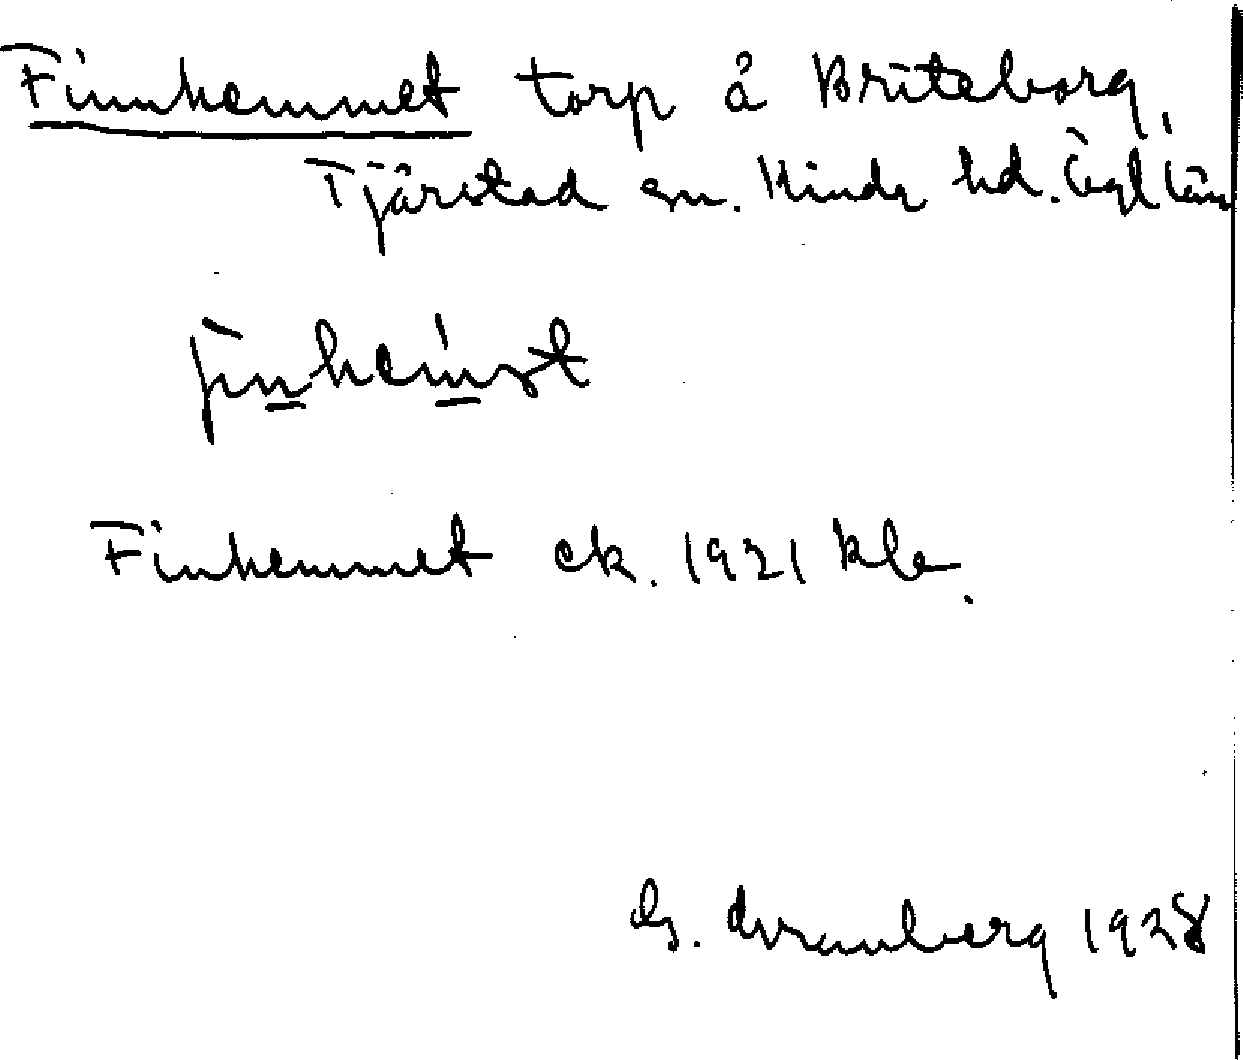 Finnhemmet torp å Briteborg,
Tjärstad sn. Kinds hd. Ögl län
finhemət
Finhemmet ek. 1921 kla.
G. Franberg 1928